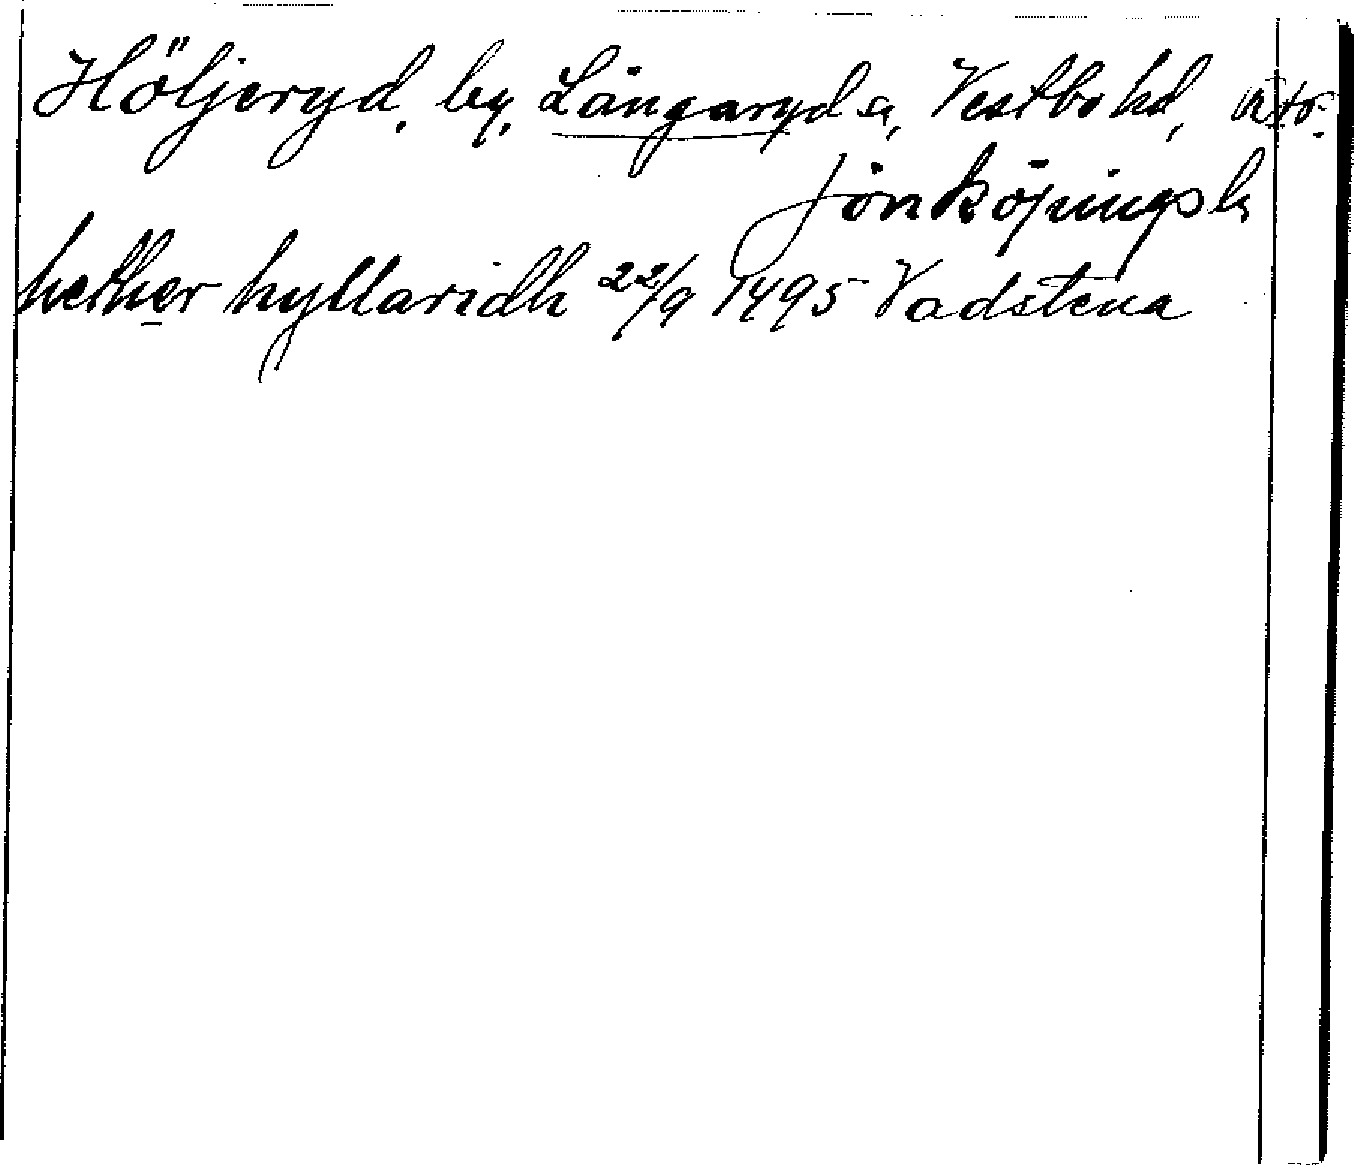 Höljeryd, by, Långaryd sn, Vestbo hd,
Jönköpings l.
hether hyllaridh 22/9 1495 Vadstena